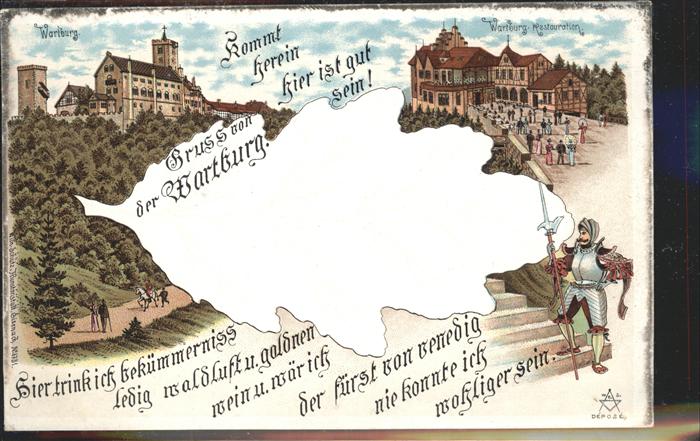 Wartburg.
Wartburg-Restauration.
Kommt
herein
hier ist gut
sein!
Gruss von
der Wartburg.
Hier trink ich bekümmerniss
ledig waldluft u. goldnen
wein u. wär ich
der fürst von venedig
nie konnte ich
wohliger sein.
DEPOSÉ